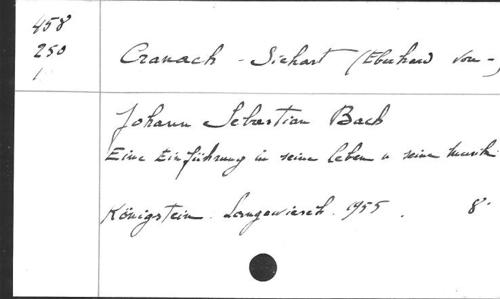 458
250
1
Cranach - Sichart (Eberhard von -)
Johann Sebastian Bach
Eine Einführung in seine leben u seine musik
Königstein. Langewiesch. 1955. 8°